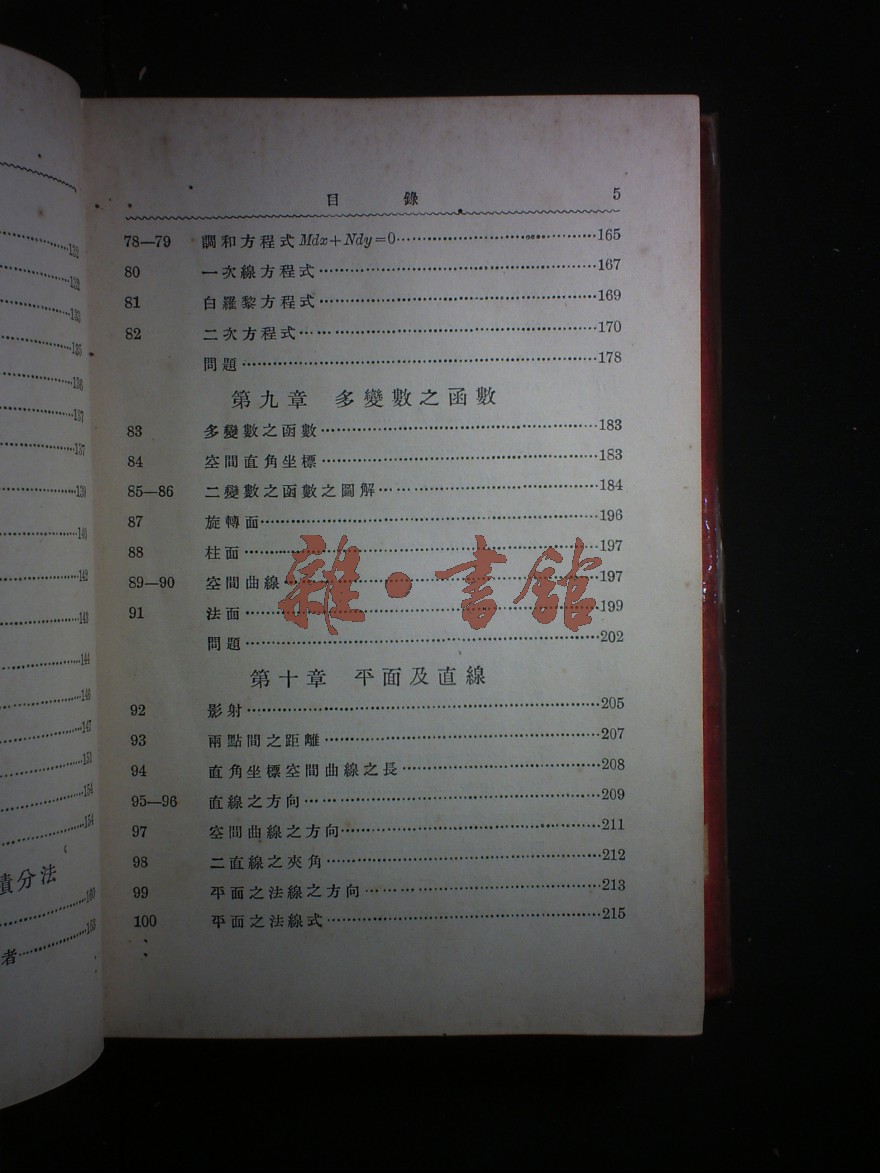 132
132
133
135
136
137
137
139
140
142
143
144
146
147
151
154
154
積分法
160
者 163
目 錄 5
78—79 調和方程式 Mdx+Ndy=0 165
80 一次線方程式 167
81 白羅黎方程式 169
82 二次方程式 170
問題 178
第九章 多變數之函數
83 多變數之函數 183
84 空間直角坐標 183
85—86 二變數之函數之圖解 184
87 旋轉面 196
88 柱面 197
89—90 空間曲線 197
91 法面 199
問題 202
雜·書館
第十章 平面及直線
92 影射 205
93 兩點間之距離 207
94 直角坐標空間曲線之長 208
95—96 直線之方向 209
97 空間曲線之方向 211
98 二直線之夾角 212
99 平面之法線之方向 213
100 平面之法線式 215